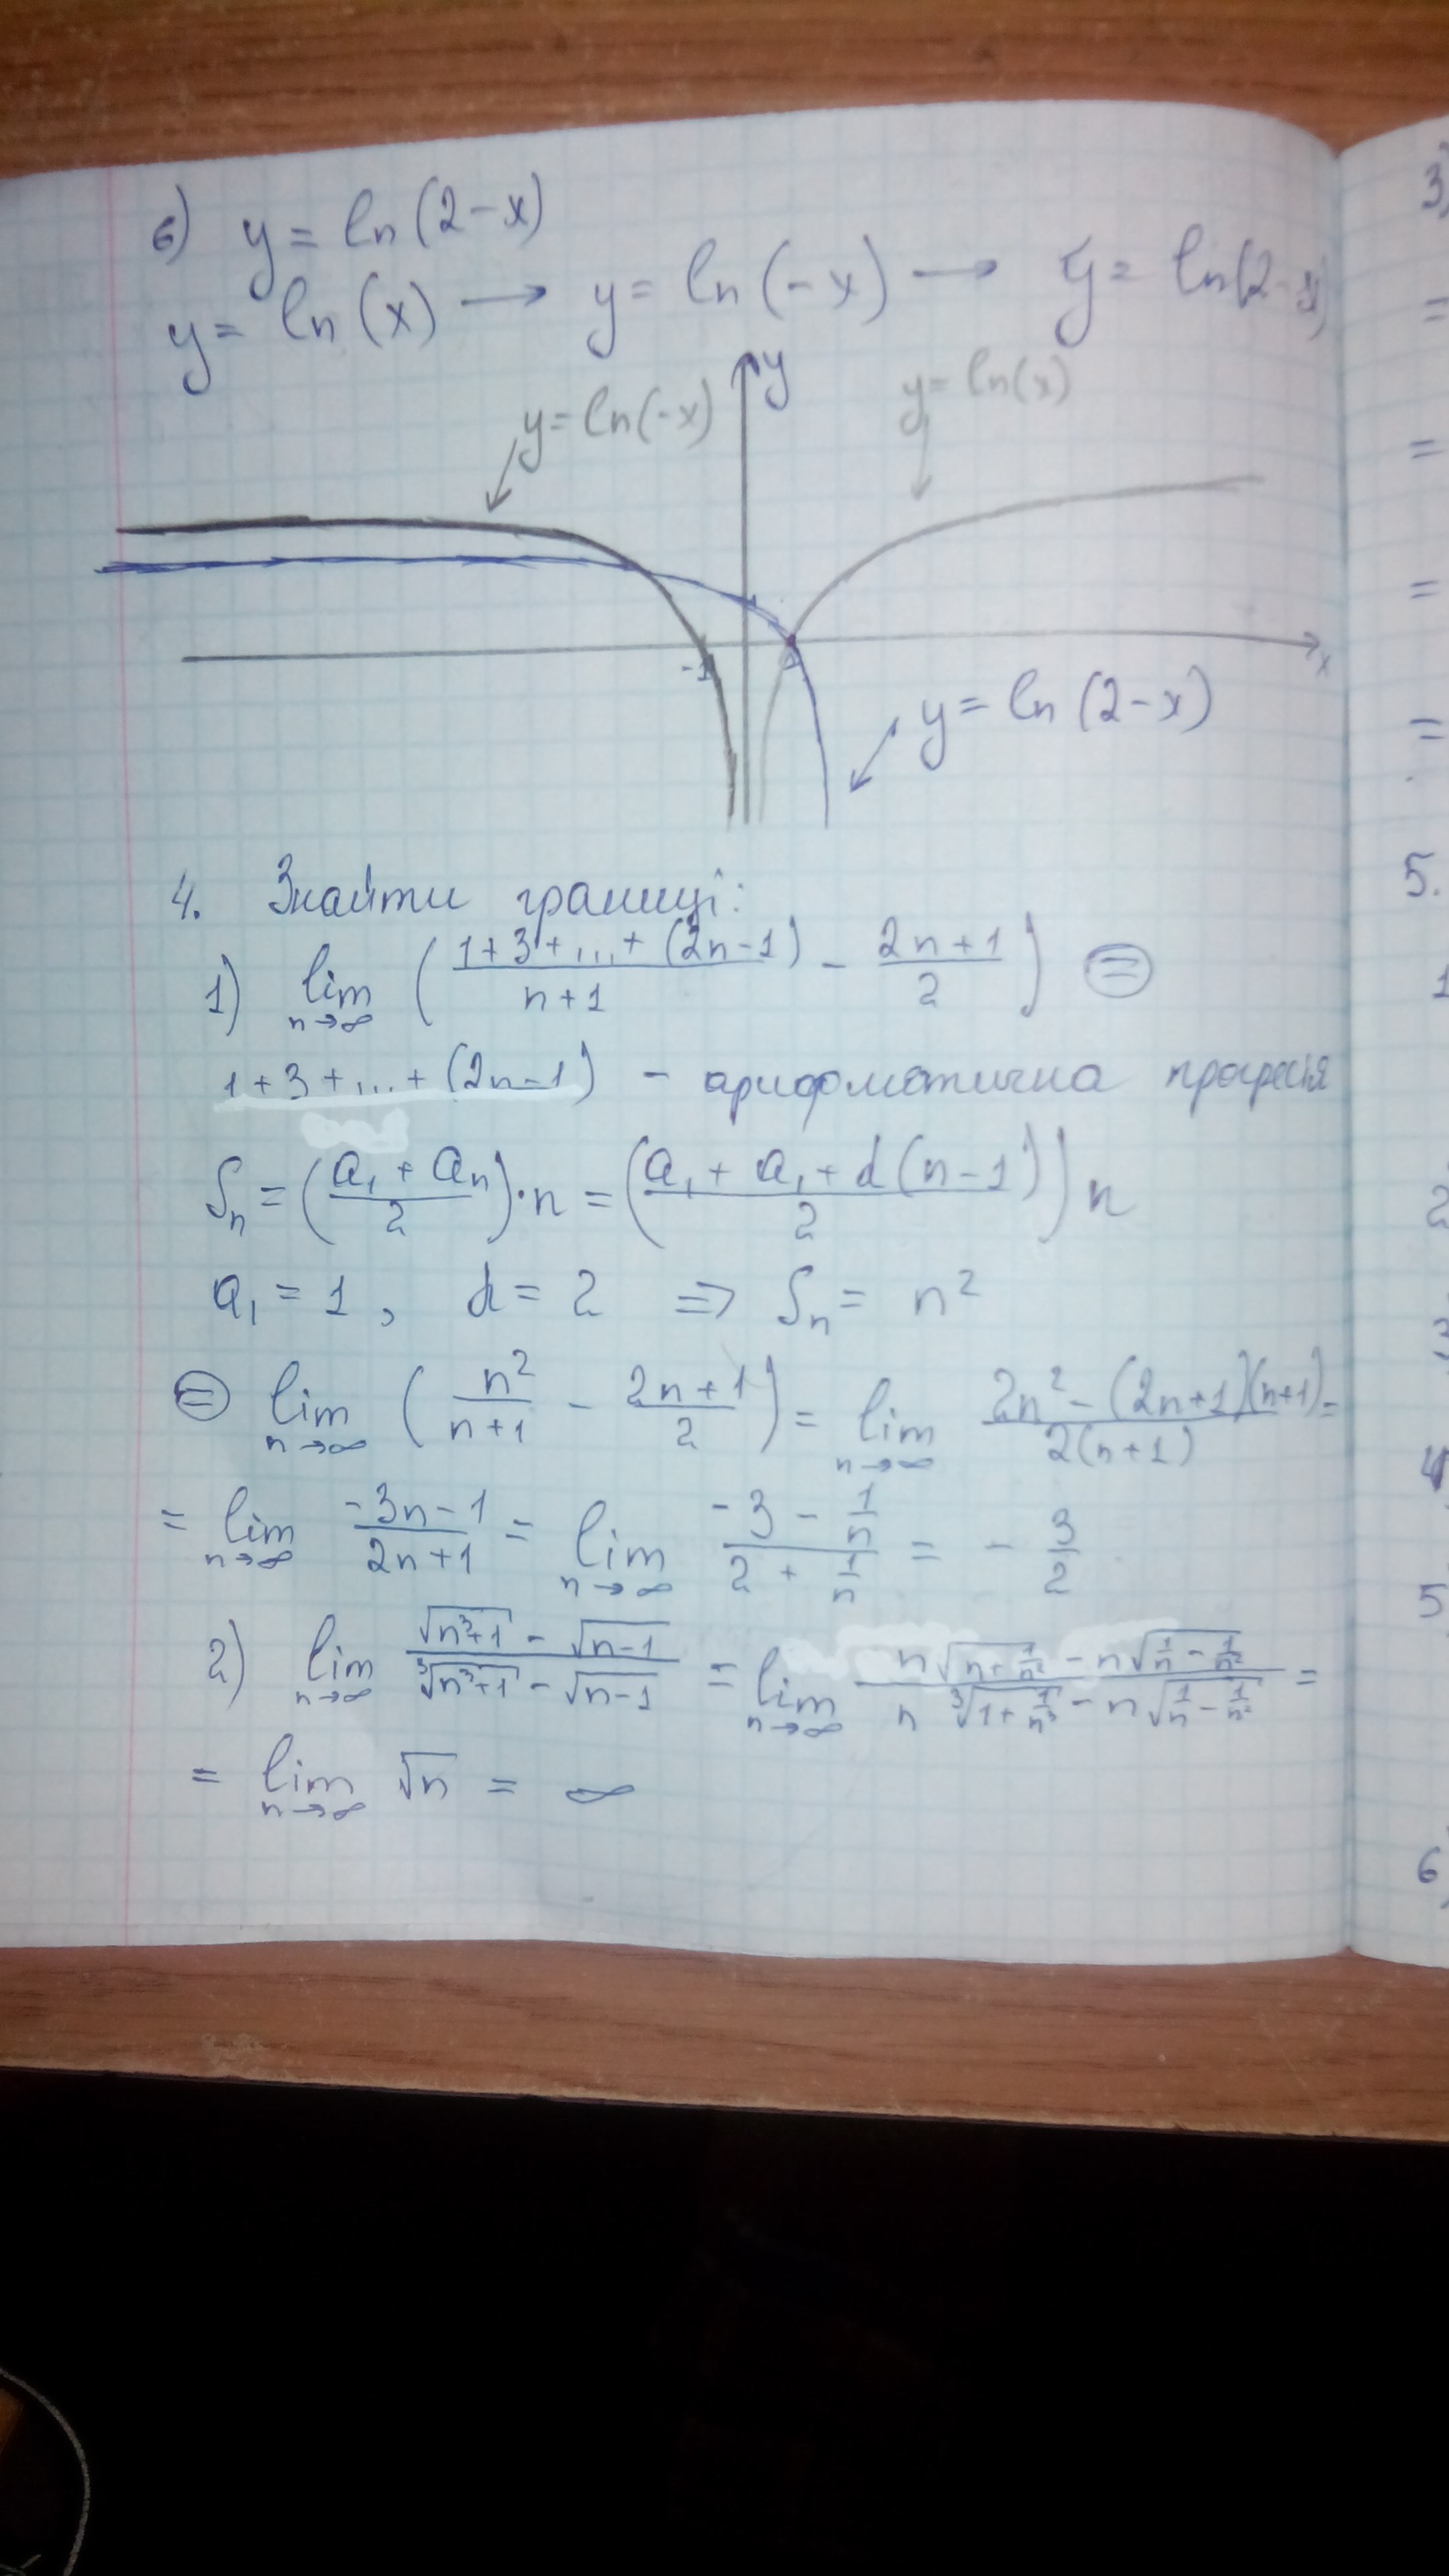 6) y = ln(2-x)
y = ln(x) → y = ln(-x) → y = ln(2-x)
y
y = ln(-x)
y = ln(x)
1
-1
x
y = ln(2-x)
4. Знайти границі:
1) lim n→∞ ( (1+3+...+(2n-1))/(n+1) - (2n+1)/2 ) ⊜
1+3+...+(2n-1) - арифметична прогресія
Sn = ((a₁ + an)/2)·n = ((a₁ + a₁ + d(n-1))/2) n
a₁ = 1, d = 2 => Sn = n²
⊜ lim n→∞ ( n²/(n+1) - (2n+1)/2 ) = lim n→∞ (2n² - (2n+1)(n+1))/(2(n+1)) =
= lim n→∞ (-3n-1)/(2n+1) = lim n→∞ (-3 - 1/n)/(2 + 1/n) = - 3/2
2) lim n→∞ (√(n³+1) - √(n-1))/(∛(n³+1) - √(n-1)) = lim n→∞ (n√(n+1/n²) - n√(1/n - 1/n²))/(n ∛(1+1/n³) - n√(1/n - 1/n²)) =
= lim n→∞ √n = ∞
3)
=
=
=
=
5.
1
2
3
4
5
6)